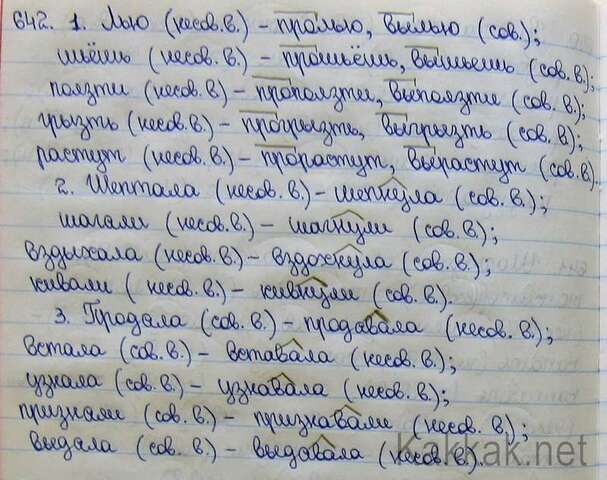 642. 1. Лью (несов. в.) – пролью, вылью (сов.);
шьёшь (несов. в.) – прошьёшь, вышьешь (сов. в.);
ползти (несов. в.) – проползти, выползти (сов. в.);
грызть (несов. в.) – прогрызть, выгрызть (сов. в.);
растут (несов. в.) – прорастут, вырастут (сов. в).
2. Шептала (несов. в.) – шепнула (сов. в.);
шагали (несов. в.) – шагнули (сов. в.);
вздыхала (несов. в.) – вздохнула (сов. в.);
кивали (несов. в.) – кивнули (сов. в.).
3. Продала (сов. в.) – продавала (несов. в.);
встала (сов. в.) – вставала (несов. в.);
узнала (сов. в.) – узнавала (несов. в.);
признали (сов. в.) – признавали (несов. в.);
выдала (сов. в.) – выдавала (несов. в.).
Kakkak.net